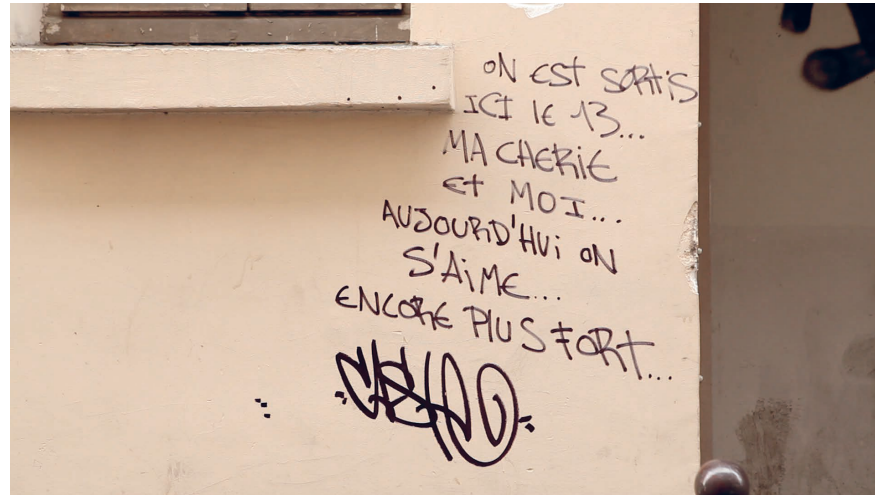 ON EST SORTIS
ICI lE 13...
MA CHERiE
Et MOI...
AUJOURD'HUi ON
S'AiME...
ENCORE PlUS FORT...